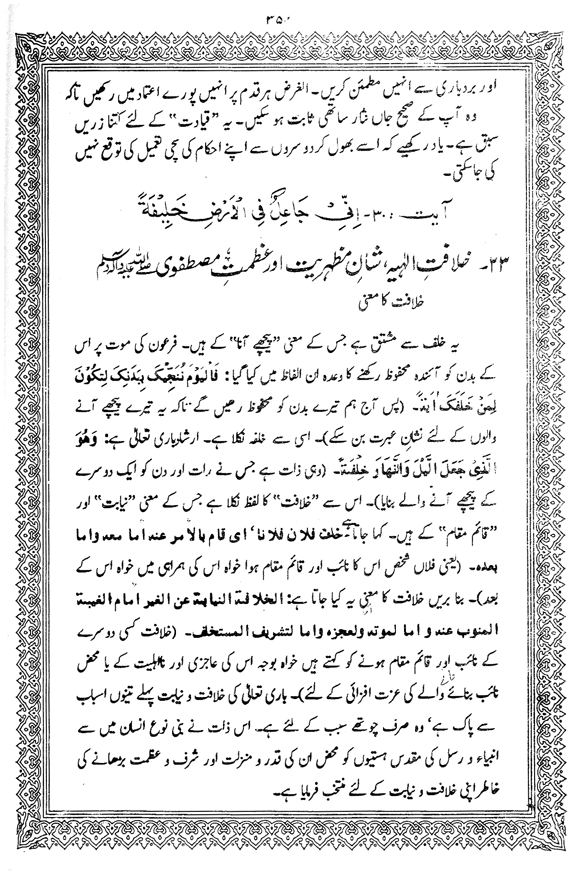 ۳۵۰
اور بردباری سے انہیں مطمئن کریں۔ الغرض ہر قدم پر انہیں پورے اعتماد میں رکھیں تاکہ
وہ آپ کے صحیح جاں نثار ساتھی ثابت ہو سکیں۔ یہ "قیادت" کے لئے کتنا زریں
سبق ہے۔ یاد رکھیے کہ اسے بھول کر دوسروں سے اپنے احکام کی سچی تعمیل کی توقع نہیں
کی جا سکتی۔
آیت ۳۰۔ اِنِّیْ جَاعِلٌ فِی الْاَرْضِ خَلِیْفَةً
۲۳۔ خلافتِ الٰہیہ، شانِ مظہریت اور عظمتِ مصطفوی ﷺ
خلافت کا معنی
یہ خلف سے مشتق ہے جس کے معنی "پیچھے آنا" کے ہیں۔ فرعون کی موت پر اس
کے بدن کو آئندہ محفوظ رکھنے کا وعدہ ان الفاظ میں کیا گیا: فَالْیَوْمَ نُنَجِّیْکَ بِبَدَنِکَ لِتَکُوْنَ
لِمَنْ خَلْفَکَ اٰیَةً۔ (پس آج ہم تیرے بدن کو محفوظ رکھیں گے تاکہ یہ تیرے پیچھے آنے
والوں کے لئے نشانِ عبرت بن سکے)۔ اسی سے خلفہ نکلا ہے۔ ارشاد باری تعالیٰ ہے: وَهُوَ
الَّذِیْ جَعَلَ الَّیْلَ وَالنَّهَارَ خِلْفَةً۔ (وہی ذات ہے جس نے رات اور دن کو ایک دوسرے
کے پیچھے آنے والے بنایا)۔ اس سے "خلافت" کا لفظ نکلا ہے جس کے معنی "نیابت" اور
"قائم مقام" کے ہیں۔ کہا جاتا ہے خلف فلان فلانا' ای قام بالامر عنه اما معه واما
بعده۔ (یعنی فلاں شخص اس کا نائب اور قائم مقام ہوا خواہ اس کی ہمراہی میں خواہ اس کے
بعد)۔ بنا بریں خلافت کا معنی یہ کیا جاتا ہے: الخلافة النیابة عن الغیر امام الغیبة
المنوب عنه و اما لموته ولعجزه واما لتشریف المستخلف۔ (خلافت کسی دوسرے
کے نائب اور قائم مقام ہونے کو کہتے ہیں خواہ بوجہ اس کی عاجزی اور نااہلیت کے یا محض
نائب بنائے والے کی عزت افزائی کے لئے)۔ باری تعالیٰ کی خلافت و نیابت پہلے تینوں اسباب
سے پاک ہے' وہ صرف چوتھے سبب کے لئے ہے۔ اس ذات نے بنی نوع انسان میں سے
انبیاء و رسل کی مقدس ہستیوں کو محض ان کی قدر و منزلت اور شرف و عظمت بڑھانے کی
خاطر اپنی خلافت و نیابت کے لئے منتخب فرمایا ہے۔